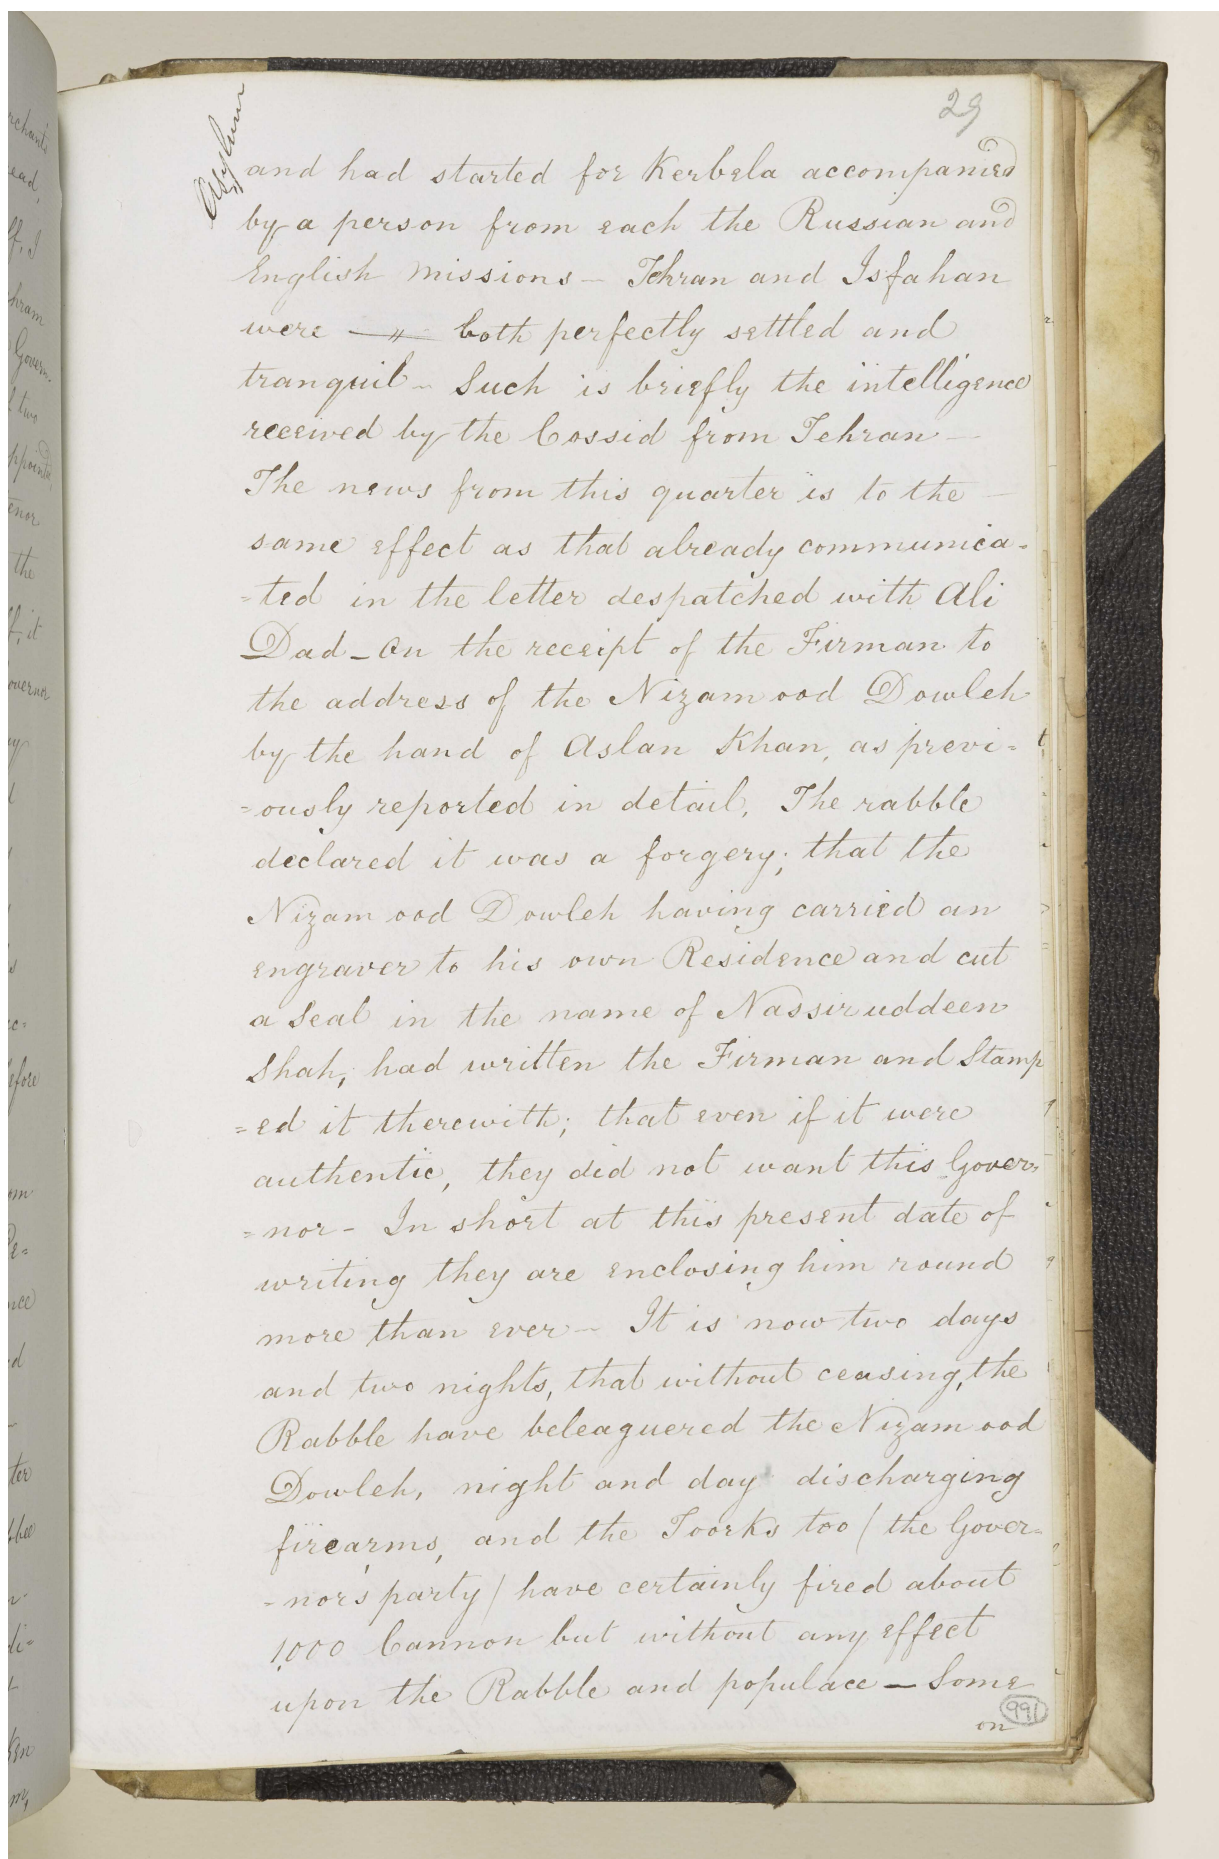 29
Asylum
and had started for Kerbela accompanied
by a person from each the Russian and
English Missions — Tehran and Isfahan
were —〃— both perfectly settled and
tranquil — Such is briefly the intelligence
received by the Cossid from Tehran —
The news from this quarter is to the —
same effect as that already communica-
=ted in the letter despatched with Ali
Dad — On the receipt of the Firman to
the address of the Nizam ood Dowleh
by the hand of Aslan Khan, as previ=
=ously reported in detail, The rabble
declared it was a forgery; that the
Nizam ood Dowleh having carried an
engraver to his own Residence and cut
a Seal in the name of Nassiruddeen
Shah, had written the Firman and Stamp
=ed it therewith; that even if it were
authentic, they did not want this Gover=
=nor — In short at this present date of
writing they are enclosing him round
more than ever — It is now two days
and two nights, that without ceasing, the
Rabble have beleaguered the Nizam ood
Dowleh, night and day discharging
firearms, and the Toorks too / the Gover=
=nor's party / have certainly fired about
1,000 Cannon but without any effect
upon the Rabble and populace — Some
on
991